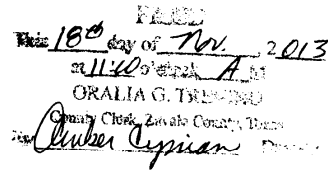 FILED
This 18th day of Nov. 2013
at 11:40 o'clock A M
ORALIA G. TREVINO
County Clerk, Zavala County, Texas
By Amber Cyprian Deputy